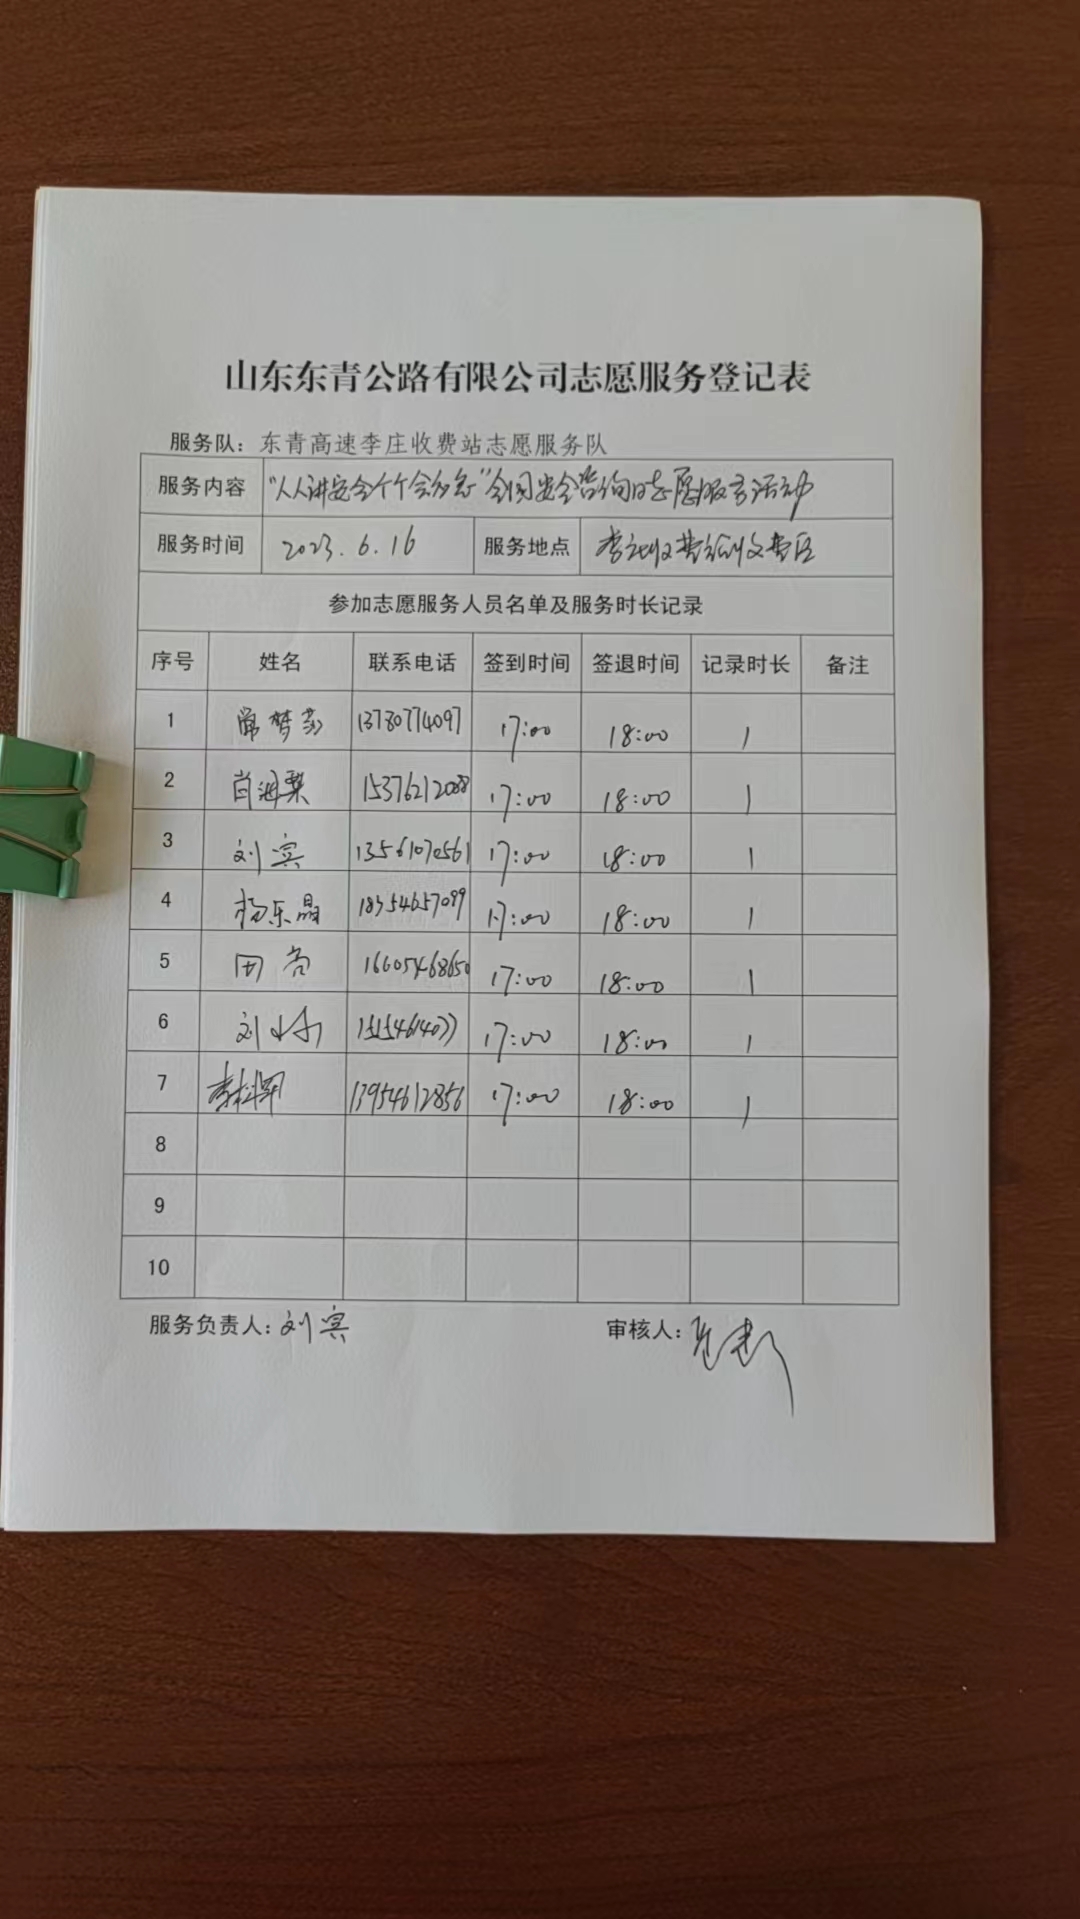 山东东青公路有限公司志愿服务登记表
服务队：东青高速李庄收费站志愿服务队
服务内容 “人人讲安全个个会应急”全国安全咨询日志愿服务活动
服务时间 2023.6.16 服务地点 李庄收费站收费区
参加志愿服务人员名单及服务时长记录
序号 姓名 联系电话 签到时间 签退时间 记录时长 备注
1 13780774097 17:00 18:00 1
2 15376212088 17:00 18:00 1
3 刘宾 13561070561 17:00 18:00 1
4 杨乐晶 18354657099 17:00 18:00 1
5 田 16605468650 17:00 18:00 1
6 刘 17:00 18:00 1
7 13954612856 17:00 18:00 1
8
9
10
服务负责人：刘宾 审核人：